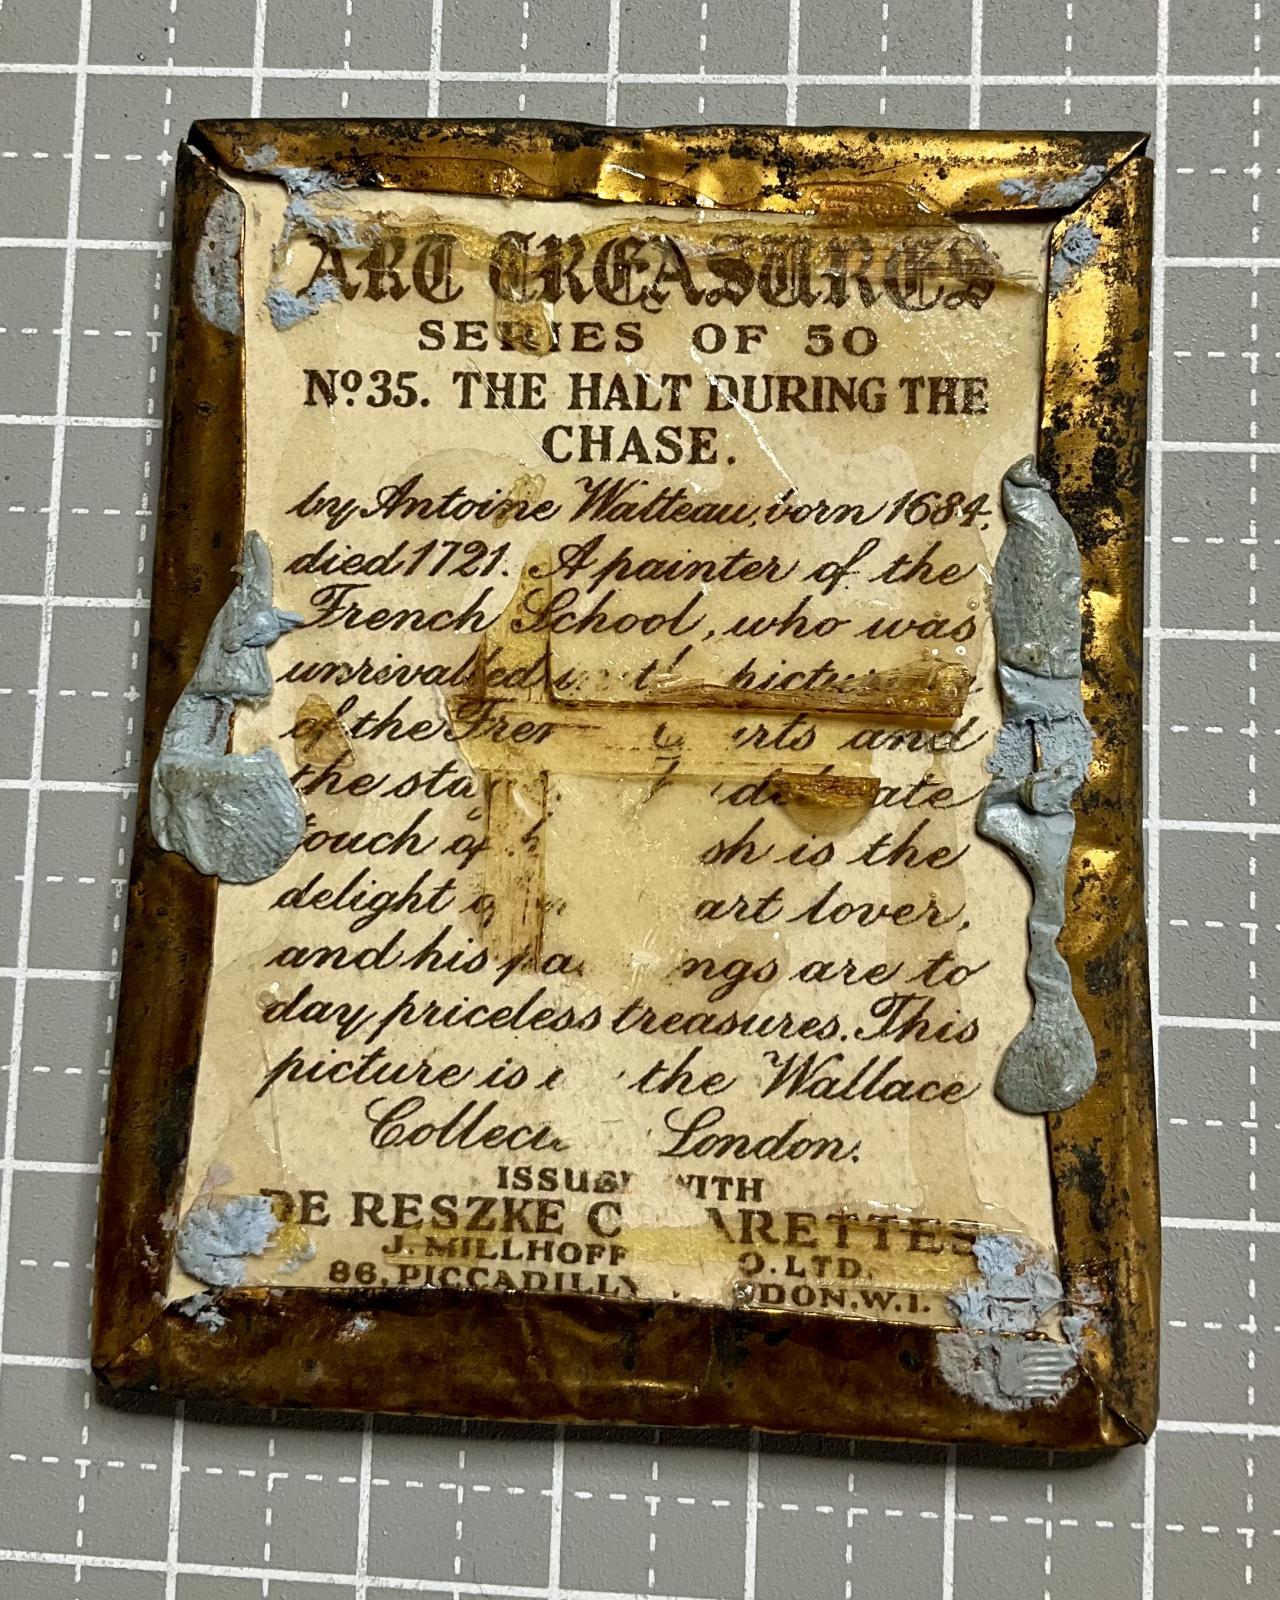 ART TREASURES
SERIES OF 50
Nº 35. THE HALT DURING THE
CHASE.
by Antoine Watteau, born 1684,
died 1721. A painter of the
French School, who was
unrivalled
of the and
the
touch of sh is the
delight art lover,
and his ngs are to
day priceless treasures. This
picture is the Wallace
London.
ISSUED WITH
DE RESZKE C ARETTES
J. MILLHOFF O. LTD.
86, PICCADILLY DON. W.1.